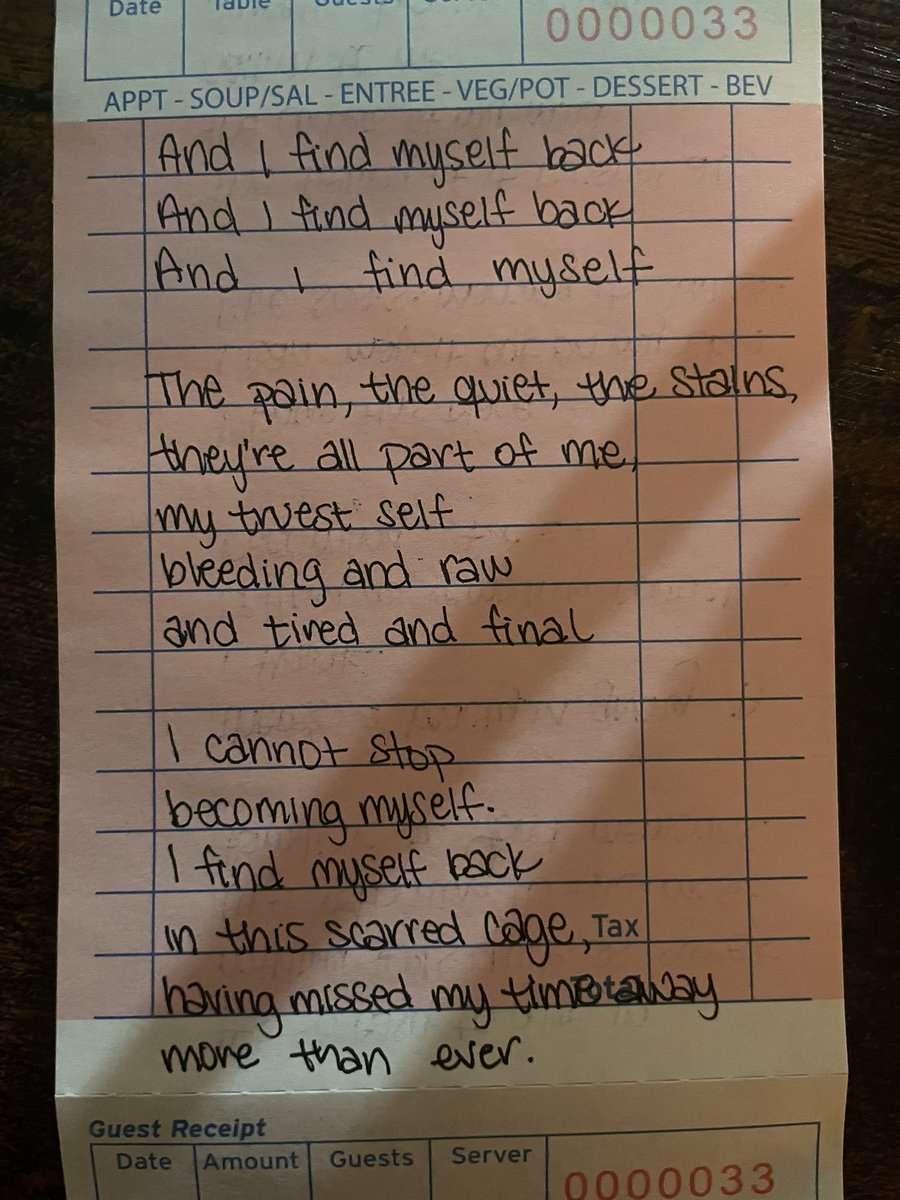 Date Table Guests Server 0000033
APPT - SOUP/SAL - ENTREE - VEG/POT - DESSERT - BEV
And I find myself back
And I find myself back
And I find myself
The pain, the quiet, the stains,
they're all part of me,
my truest self
bleeding and raw
and tired and final
I cannot stop
becoming myself.
I find myself back
in this scarred cage, Tax
having missed my time away
more than ever.
Guest Receipt
Date Amount Guests Server 0000033